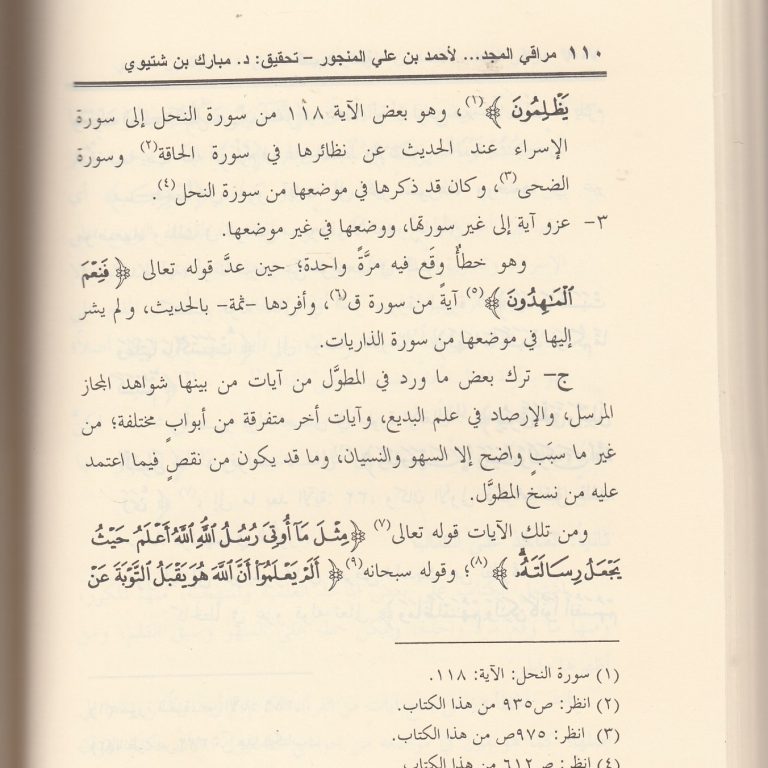 ١١٠ مراقي المجد... لأحمد بن علي المنجور – تحقيق: د. مبارك بن شتيوي
يَظْلِمُونَ ﴾(١)، وهو بعض الآية ١١٨ من سورة النحل إلى سورة
الإسراء عند الحديث عن نظائرها في سورة الحاقة(٢) وسورة
الضحى(٣)، وكان قد ذكرها في موضعها من سورة النحل(٤).
٣- عزو آية إلى غير سورتها، ووضعها في غير موضعها.
وهو خطأٌ وقَع فيه مرَّةً واحدة؛ حين عدَّ قوله تعالى ﴿ فَنِعْمَ
الْمَاهِدُونَ ﴾(٥) آيةً من سورة ق(٦)، وأفردها –ثمة– بالحديث، ولم يشر
إليها في موضعها من سورة الذاريات.
ج– ترك بعض ما ورد في المطوَّل من آيات من بينها شواهد المجاز
المرسل، والإرصاد في علم البديع، وآيات أخر متفرقة من أبوابٍ مختلفة؛ من
غير ما سبَبٍ واضح إلا السهو والنسيان، وما قد يكون من نقصٍ فيما اعتمد
عليه من نسخ المطوَّل.
ومن تلك الآيات قوله تعالى(٧) ﴿ مِثْلَ مَآ أُوتِىَ رُسُلُ اللَّهِ اللَّهُ أَعْلَمُ حَيْثُ
يَجْعَلُ رِسَالَتَهُۥ ﴾(٨)؛ وقوله سبحانه(٩)﴿ أَلَمْ يَعْلَمُوٓا أَنَّ اللَّهَ هُوَ يَقْبَلُ التَّوْبَةَ عَنْ
(١) سورة النحل: الآية: ١١٨.
(٢) انظر: ص٩٣٥ من هذا الكتاب.
(٣) انظر: ٩٧٥ص من هذا الكتاب.
(٤) انظر: ص ٦١٢ من هذا الكتاب